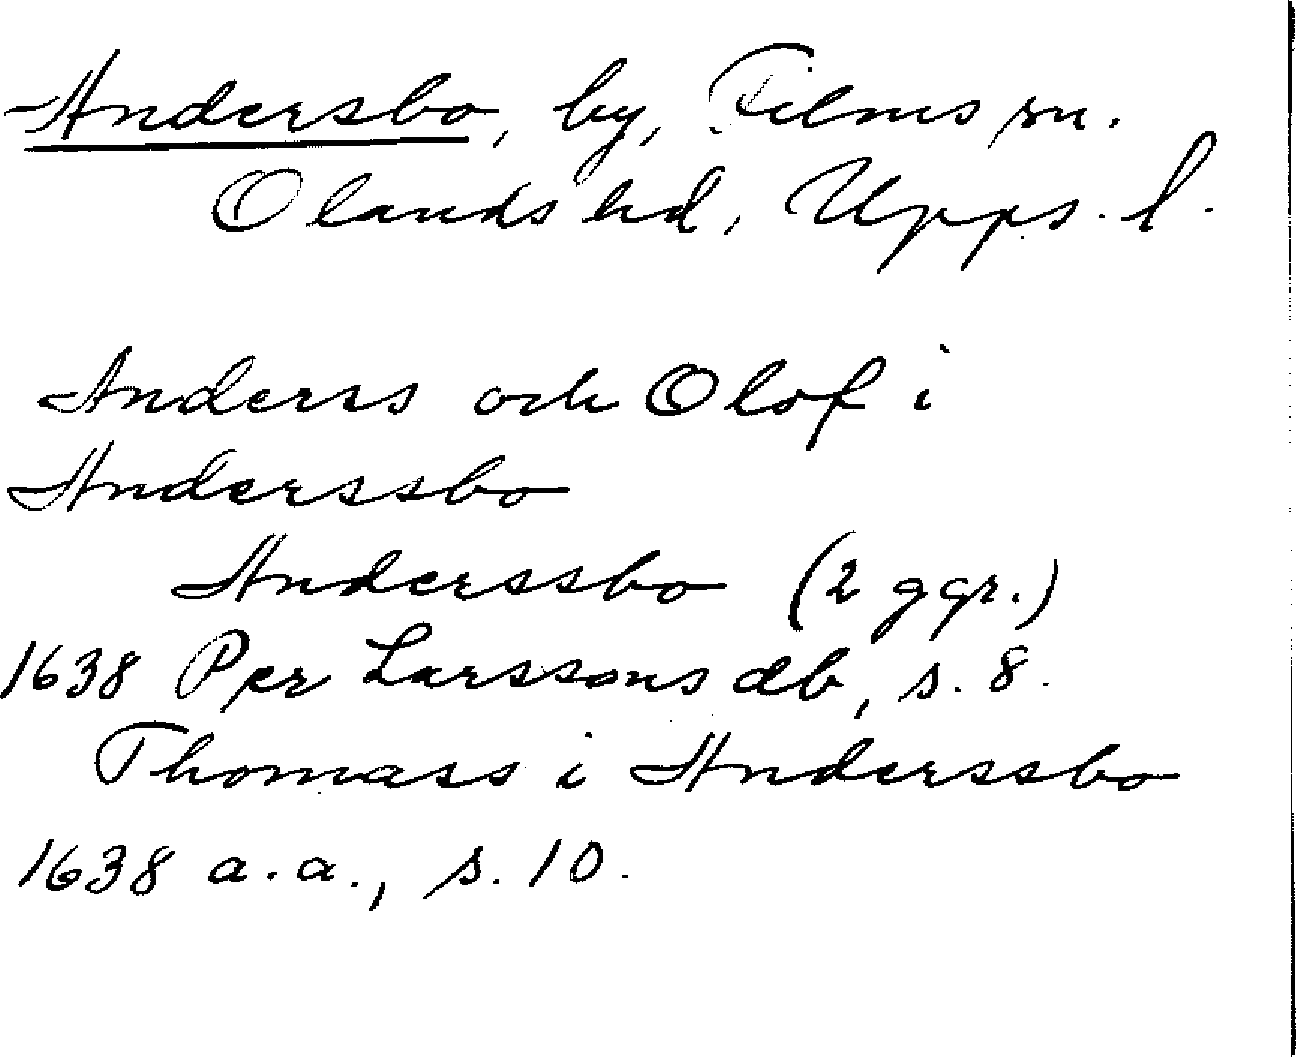 Andersbo, by, Films sn.
Olands hd, Upps. l.
Anderss och Olof i
Anderssbo
Anderssbo (2 ggr.)
1638 Per Larssons db, s. 8.
Thomass i Anderssbo
1638 a.a., s. 10.